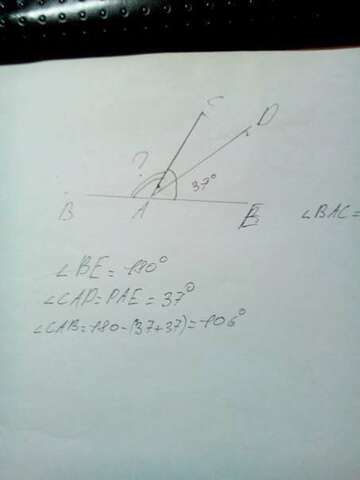 C
D
?
37°
B A E
∠BAC =
∠BE = 180°
∠CAD = DAE = 37°
∠CAB = 180 - (37 + 37) = 106°